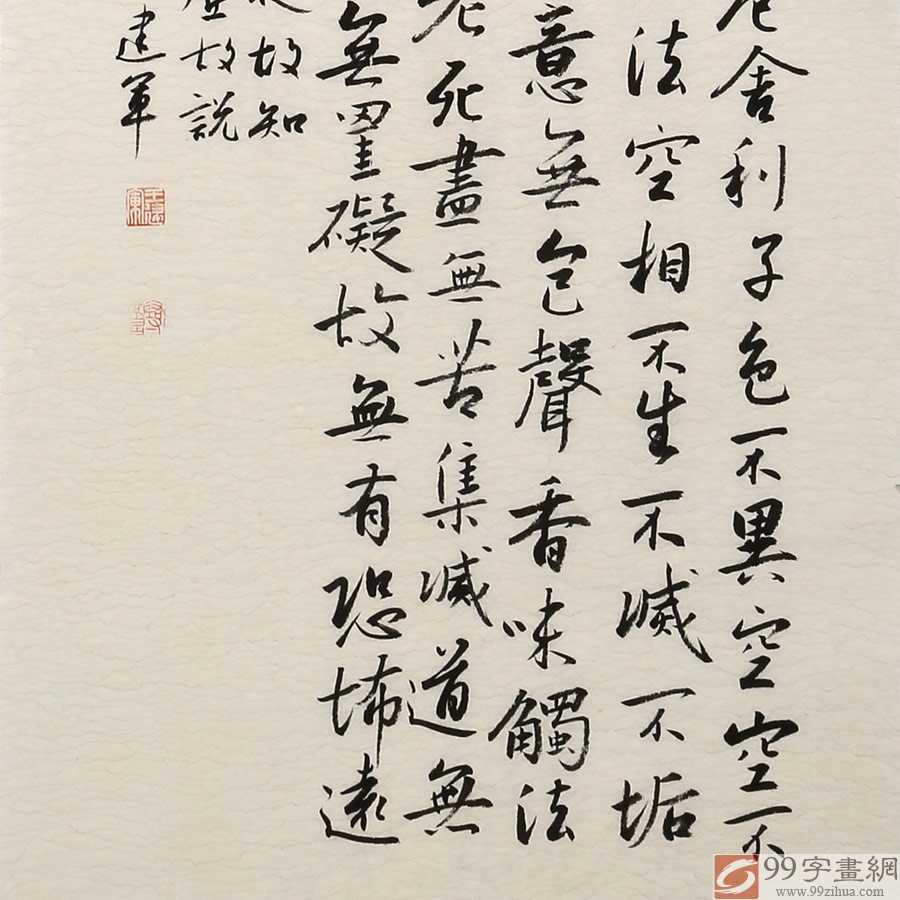 厄舍利子色不異空空不
法空相不生不滅不垢
意無色聲香味觸法
老死盡無苦集滅道無
無罣礙故無有恐怖遠
故知
虛故說
建軍
99字畫網
www.99zihua.com